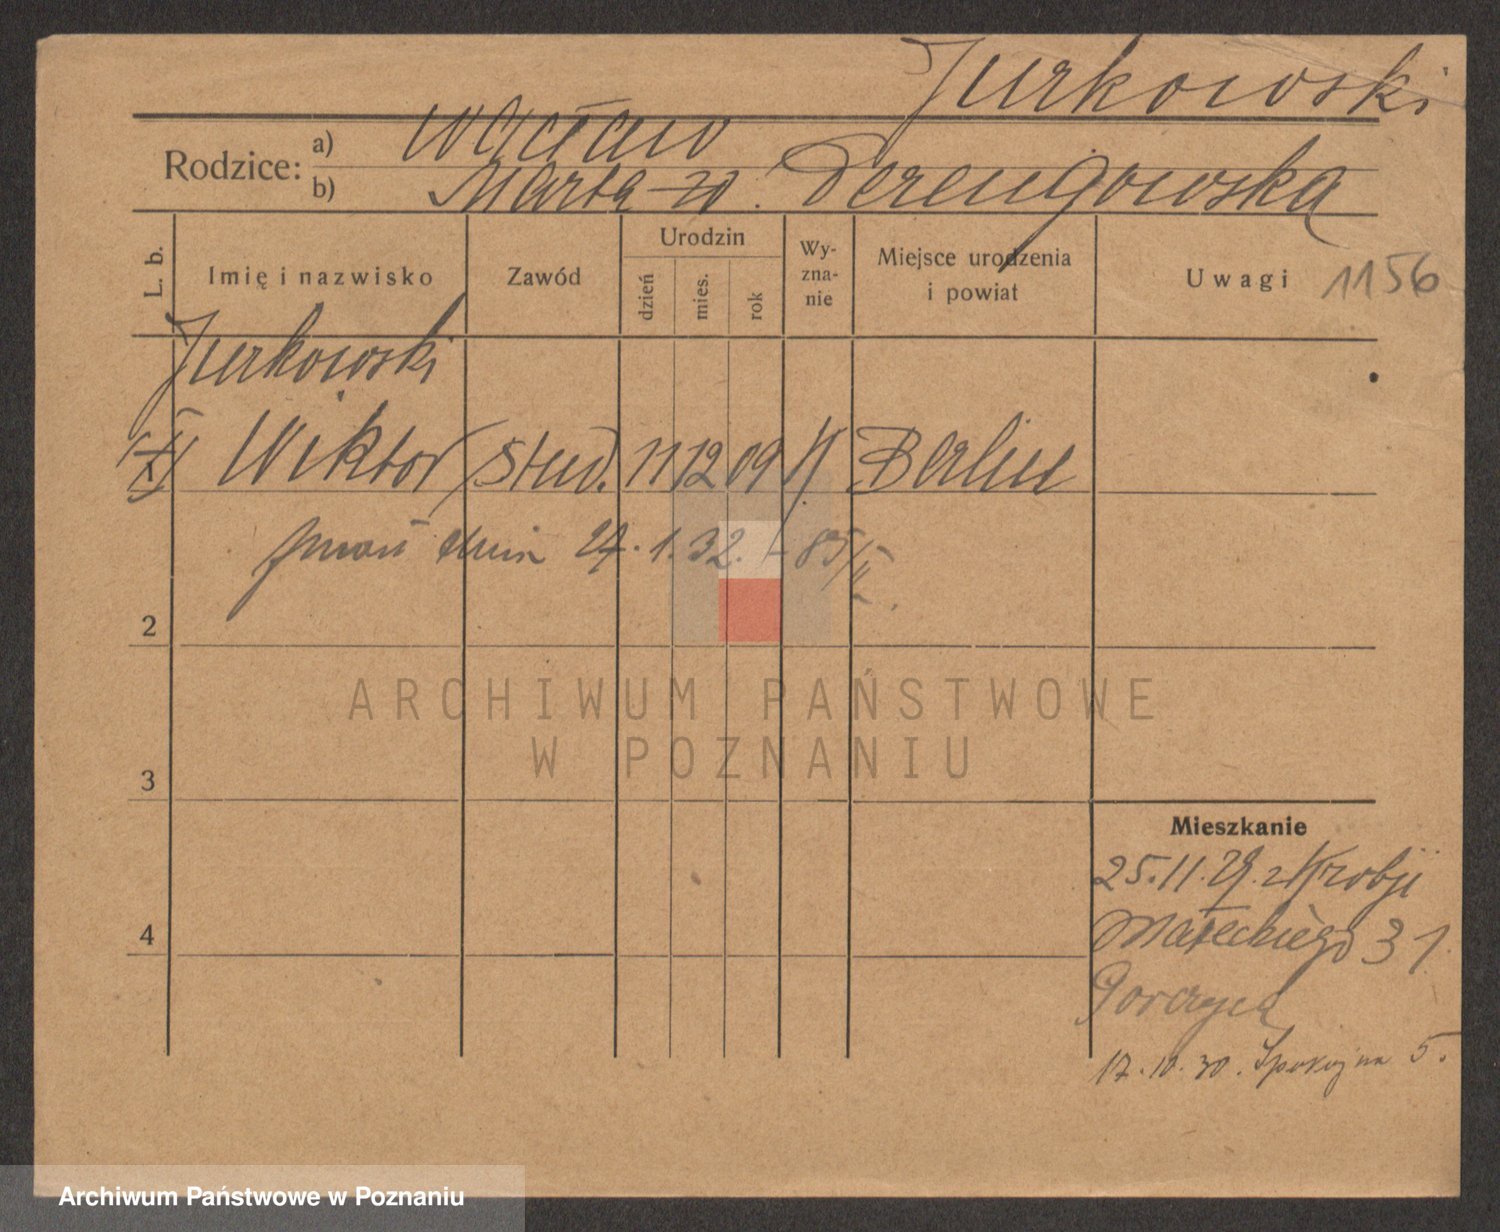 Jurkowski
Rodzice: a) Wacław
b) Marta zd. Derengowska
L. b.
Imię i nazwisko
Zawód
Urodzin
dzień
mies.
rok
Wy-
zna-
nie
Miejsce urodzenia
i powiat
Uwagi
1156
Jurkowski
Wiktor stud. 11 12 09 Berlin
zmarł dnia 27.1.32. - 85/II.
2
ARCHIWUM PAŃSTWOWE
W POZNANIU
3
Mieszkanie
25.11.29. z Krobji
4
Małeckiego 31
17.10.30. Spokojna 5.
Archiwum Państwowe w Poznaniu